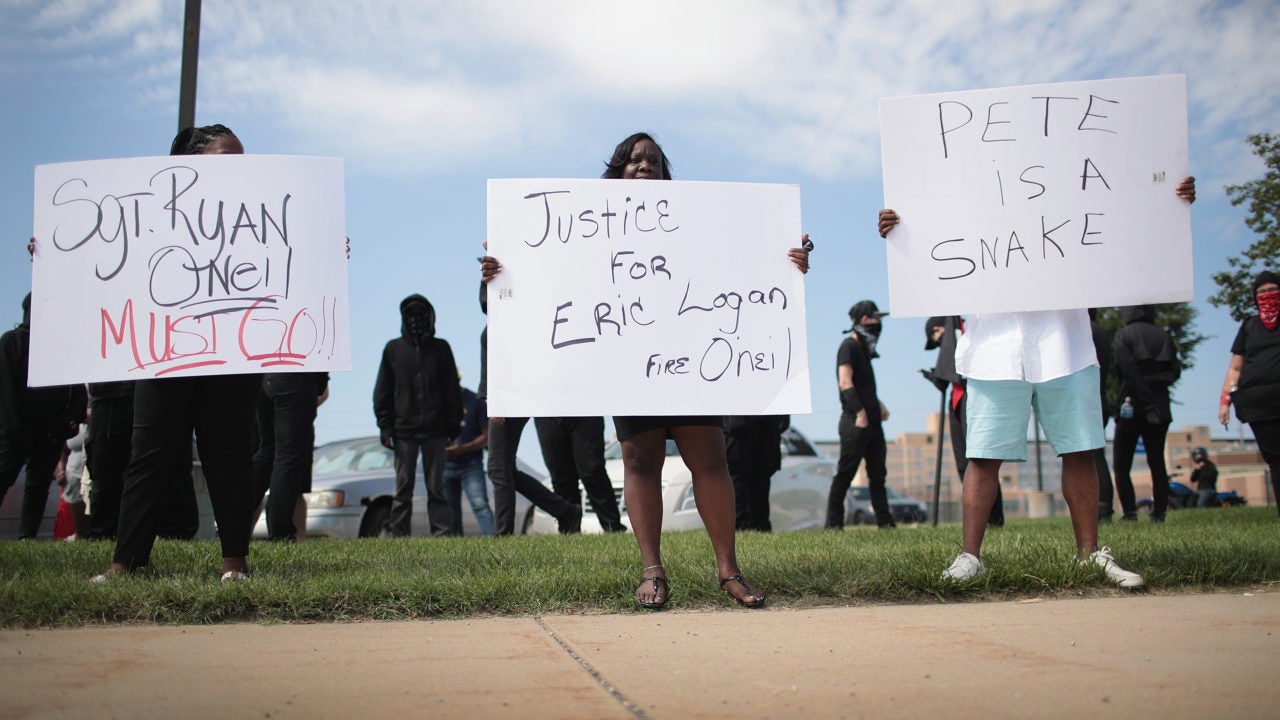 SGT. RYAN
ONEIL
MUST GO!!
JUSTICE
FOR
ERIC Logan
FIRE O'NEIL
PETE
iS A
SNAKE